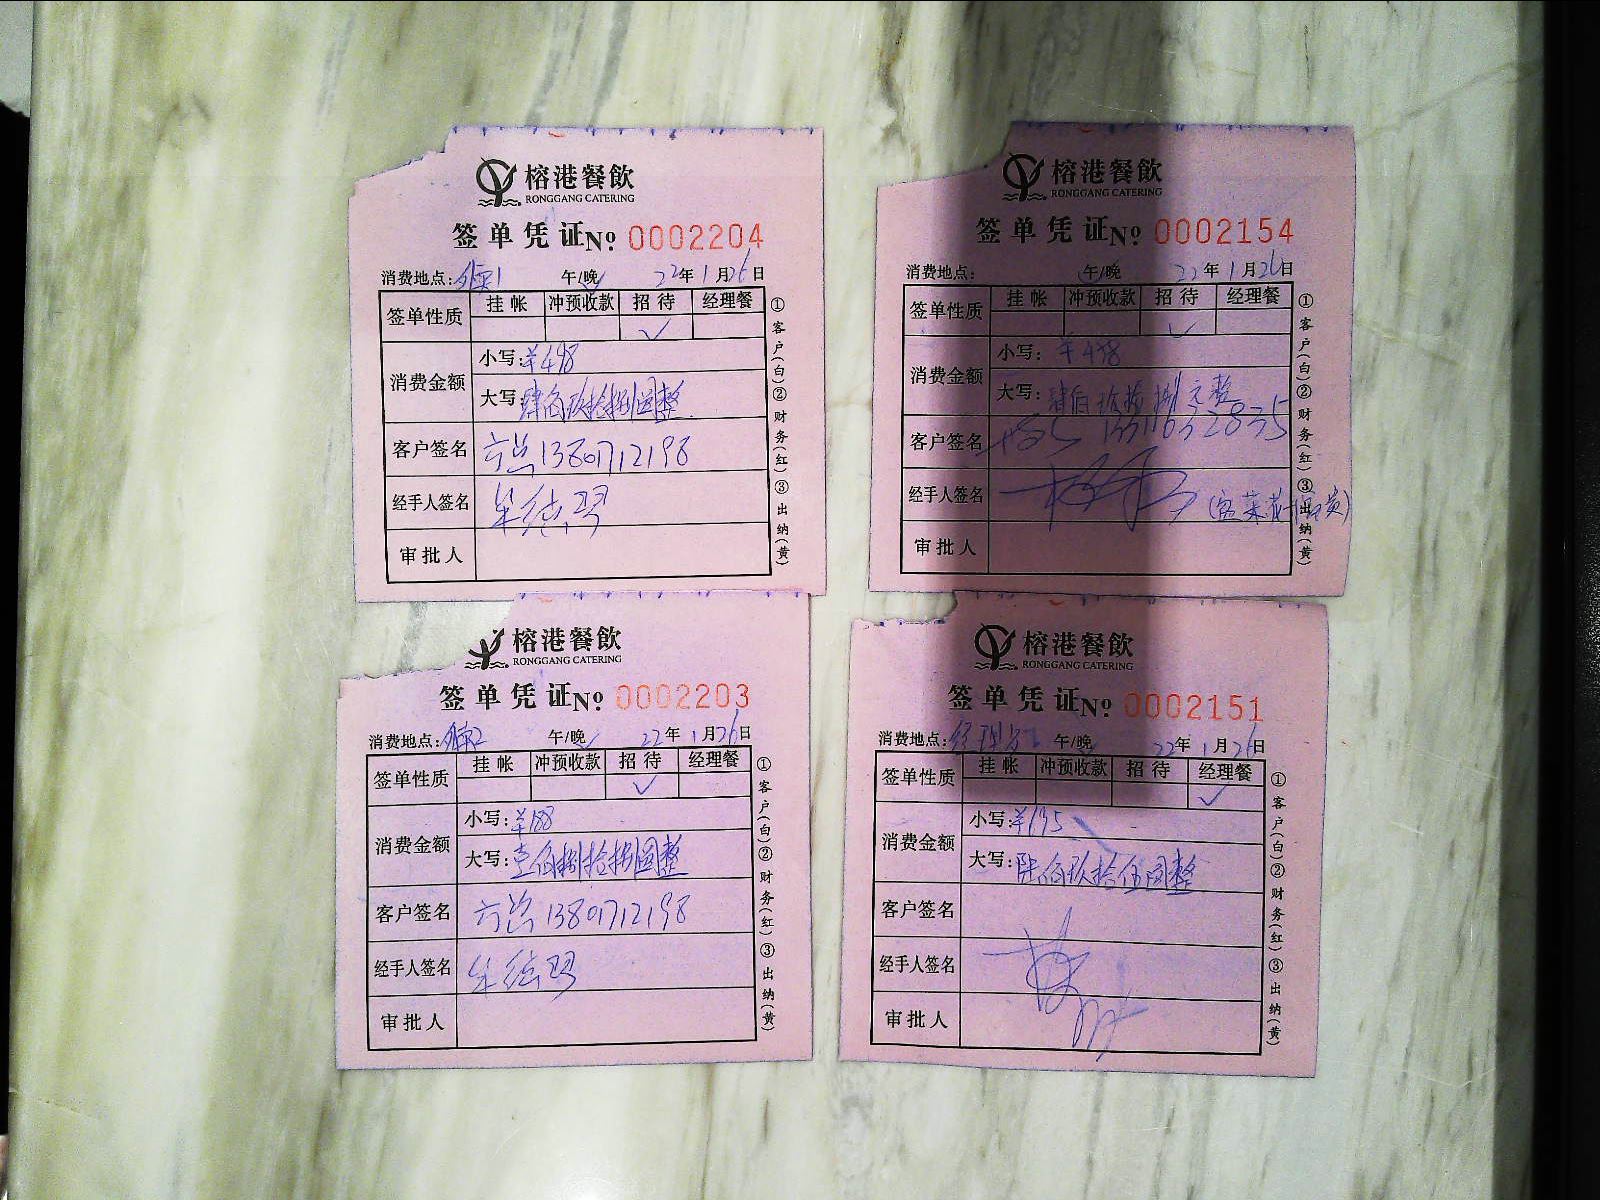 榕港餐飲
RONGGANG CATERING
签单凭证 № 0002204
消费地点: 午/晚 22年1月26日
签单性质 挂帐 冲预收款 招待 经理餐
✓
消费金额
小写:¥498
大写:肆佰玖拾捌圆整
客户签名 方总 13801712198
经手人签名 牟德琴
审批人
①客户(白)②财务(红)③出纳(黄)
榕港餐飲
RONGGANG CATERING
签单凭证 № 0002154
消费地点: 午/晚 22年1月26日
签单性质 挂帐 冲预收款 招待 经理餐
✓
消费金额
小写:¥498
大写:肆佰玖拾捌元整
客户签名
经手人签名
审批人
①客户(白)②财务(红)③出纳(黄)
榕港餐飲
RONGGANG CATERING
签单凭证 № 0002203
消费地点: 午/晚 22年1月26日
签单性质 挂帐 冲预收款 招待 经理餐
✓
消费金额
小写:¥188
大写:壹佰捌拾捌圆整
客户签名 方总 13801712198
经手人签名 牟德琴
审批人
①客户(白)②财务(红)③出纳(黄)
榕港餐飲
RONGGANG CATERING
签单凭证 № 0002151
消费地点: 午/晚 22年1月26日
签单性质 挂帐 冲预收款 招待 经理餐
✓
消费金额
小写:¥695
大写:陆佰玖拾伍圆整
客户签名
经手人签名
审批人
①客户(白)②财务(红)③出纳(黄)